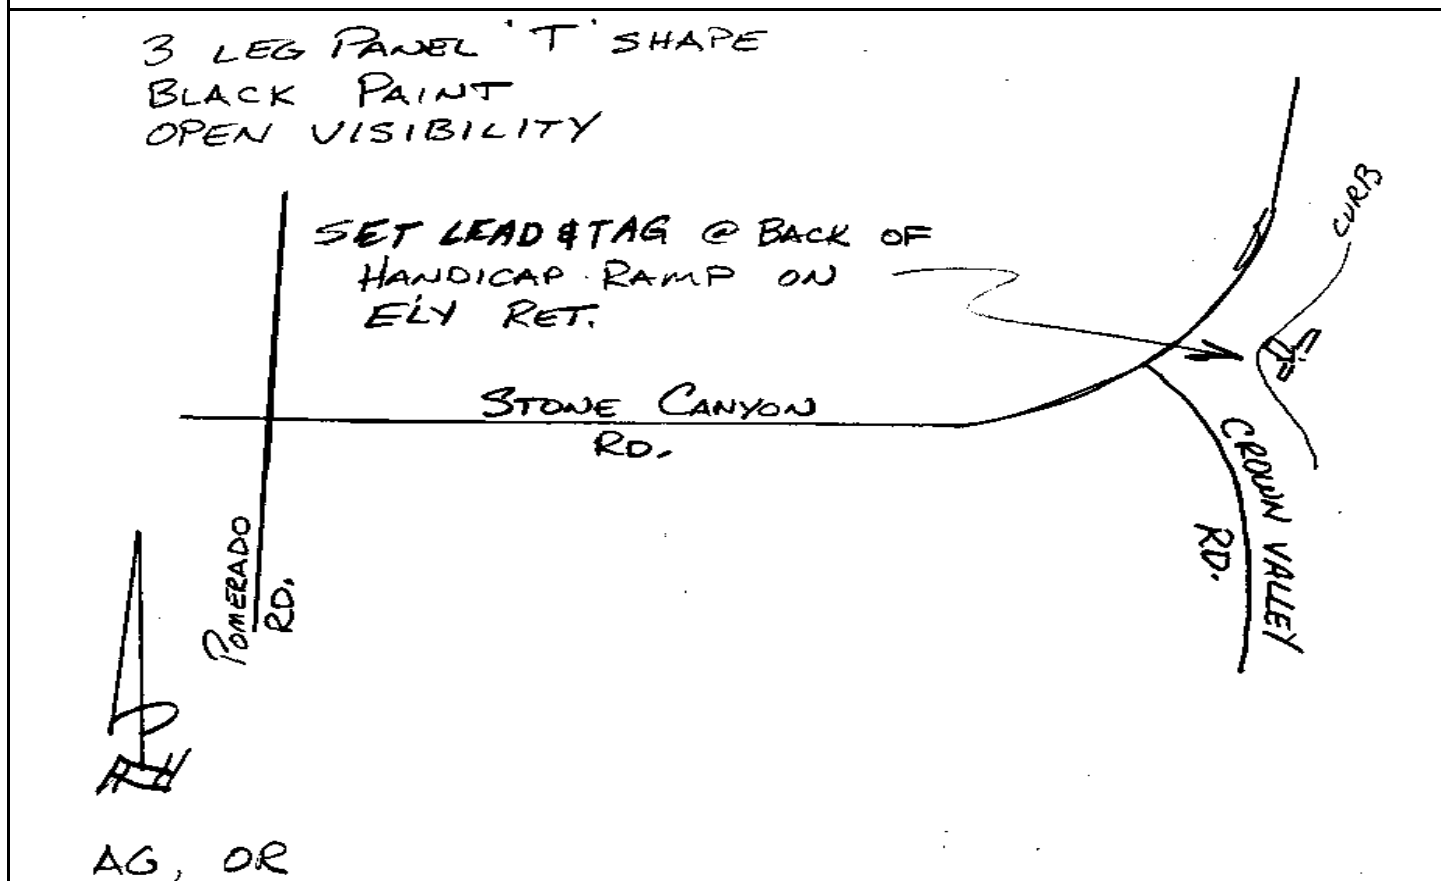 3 LEG PANEL 'T' SHAPE
BLACK PAINT
OPEN VISIBILITY
SET LEAD & TAG @ BACK OF
HANDICAP RAMP ON
ELY RET.
CURB
STONE CANYON
RD.
CROWN VALLEY
RD.
POMERADO
RD.
AG, OR